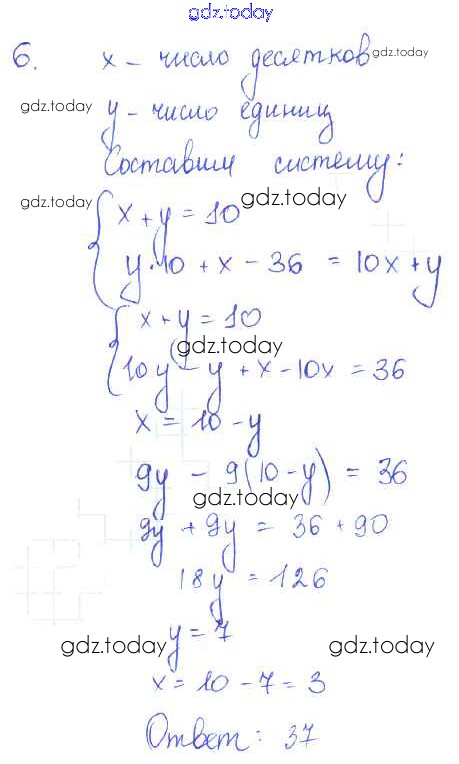 gdz.today
6. x - число десятков gdz.today
gdz.today y - число единиц
Составим систему:
gdz.today x + y = 10 gdz.today
y·10 + x - 36 = 10x + y
x + y = 10
gdz.today
10y - y + x - 10x = 36
x = 10 - y
9y - 9(10 - y) = 36
gdz.today
9y + 9y = 36 + 90
18y = 126
y = 7
gdz.today gdz.today
x = 10 - 7 = 3
Ответ: 37